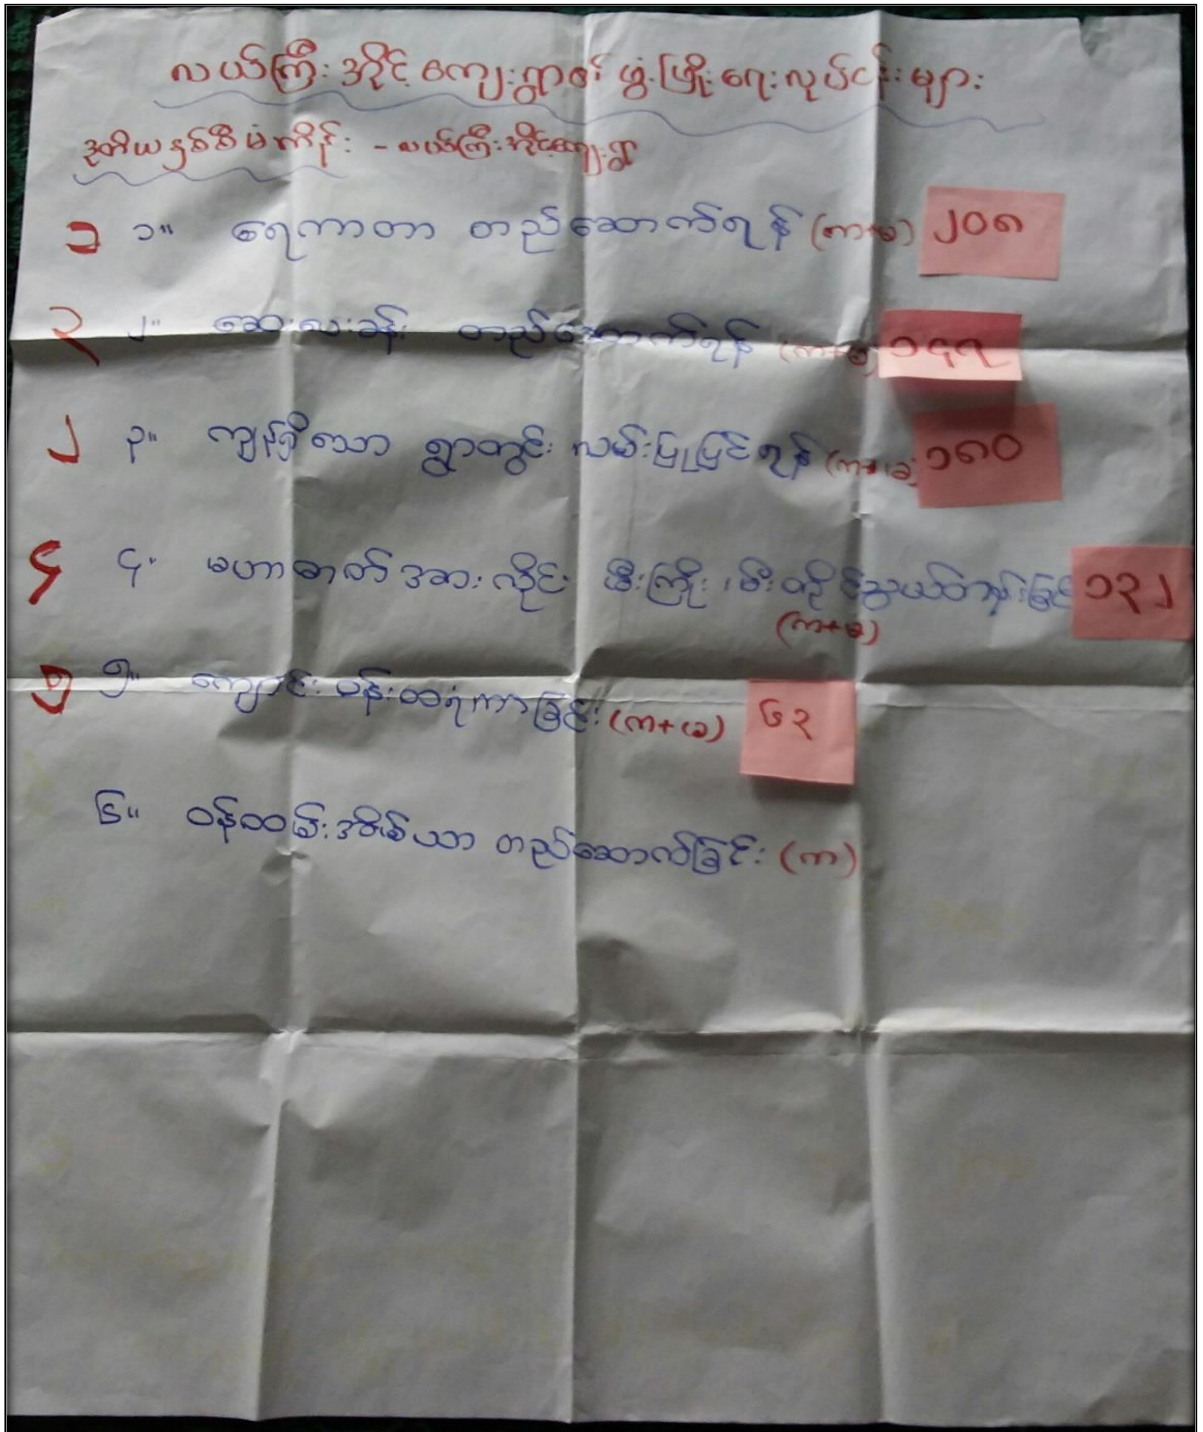 လယ်ကြီးအိုင့်ကျေးရွာ ဖွံ့ဖြိုးရေးလုပ်ငန်းများ
ဒုတိယနှစ်စီမံကိန်း - လယ်ကြီးအိုင့်ကျေးရွာ
၁ ၁။ ရေကာတာ တည်ဆောက်ရန် (က+ခ) ၂၀၈
၃ ၂။ ဆေးပေးခန်း တည်ဆောက်ရန် (က+ခ) ၁၄၇
၂ ၃။ ကျန်ရှိသော ရွာတွင်း လမ်းပြုပြင်ရန် (က+ခ) ၁၈၀
၄ ၄။ မဟာဓာတ်အားလိုင်း မီးကြိုး၊ မီးတိုင်သွယ်တန်းခြင်း ၁၃၂
(က+ခ)
၅ ၅။ ကျောင်းဝန်းထရံကာခြင်း (က+ခ) ၆၃
၆။ ဝန်ထမ်းအိမ်ယာ တည်ဆောက်ခြင်း (က)